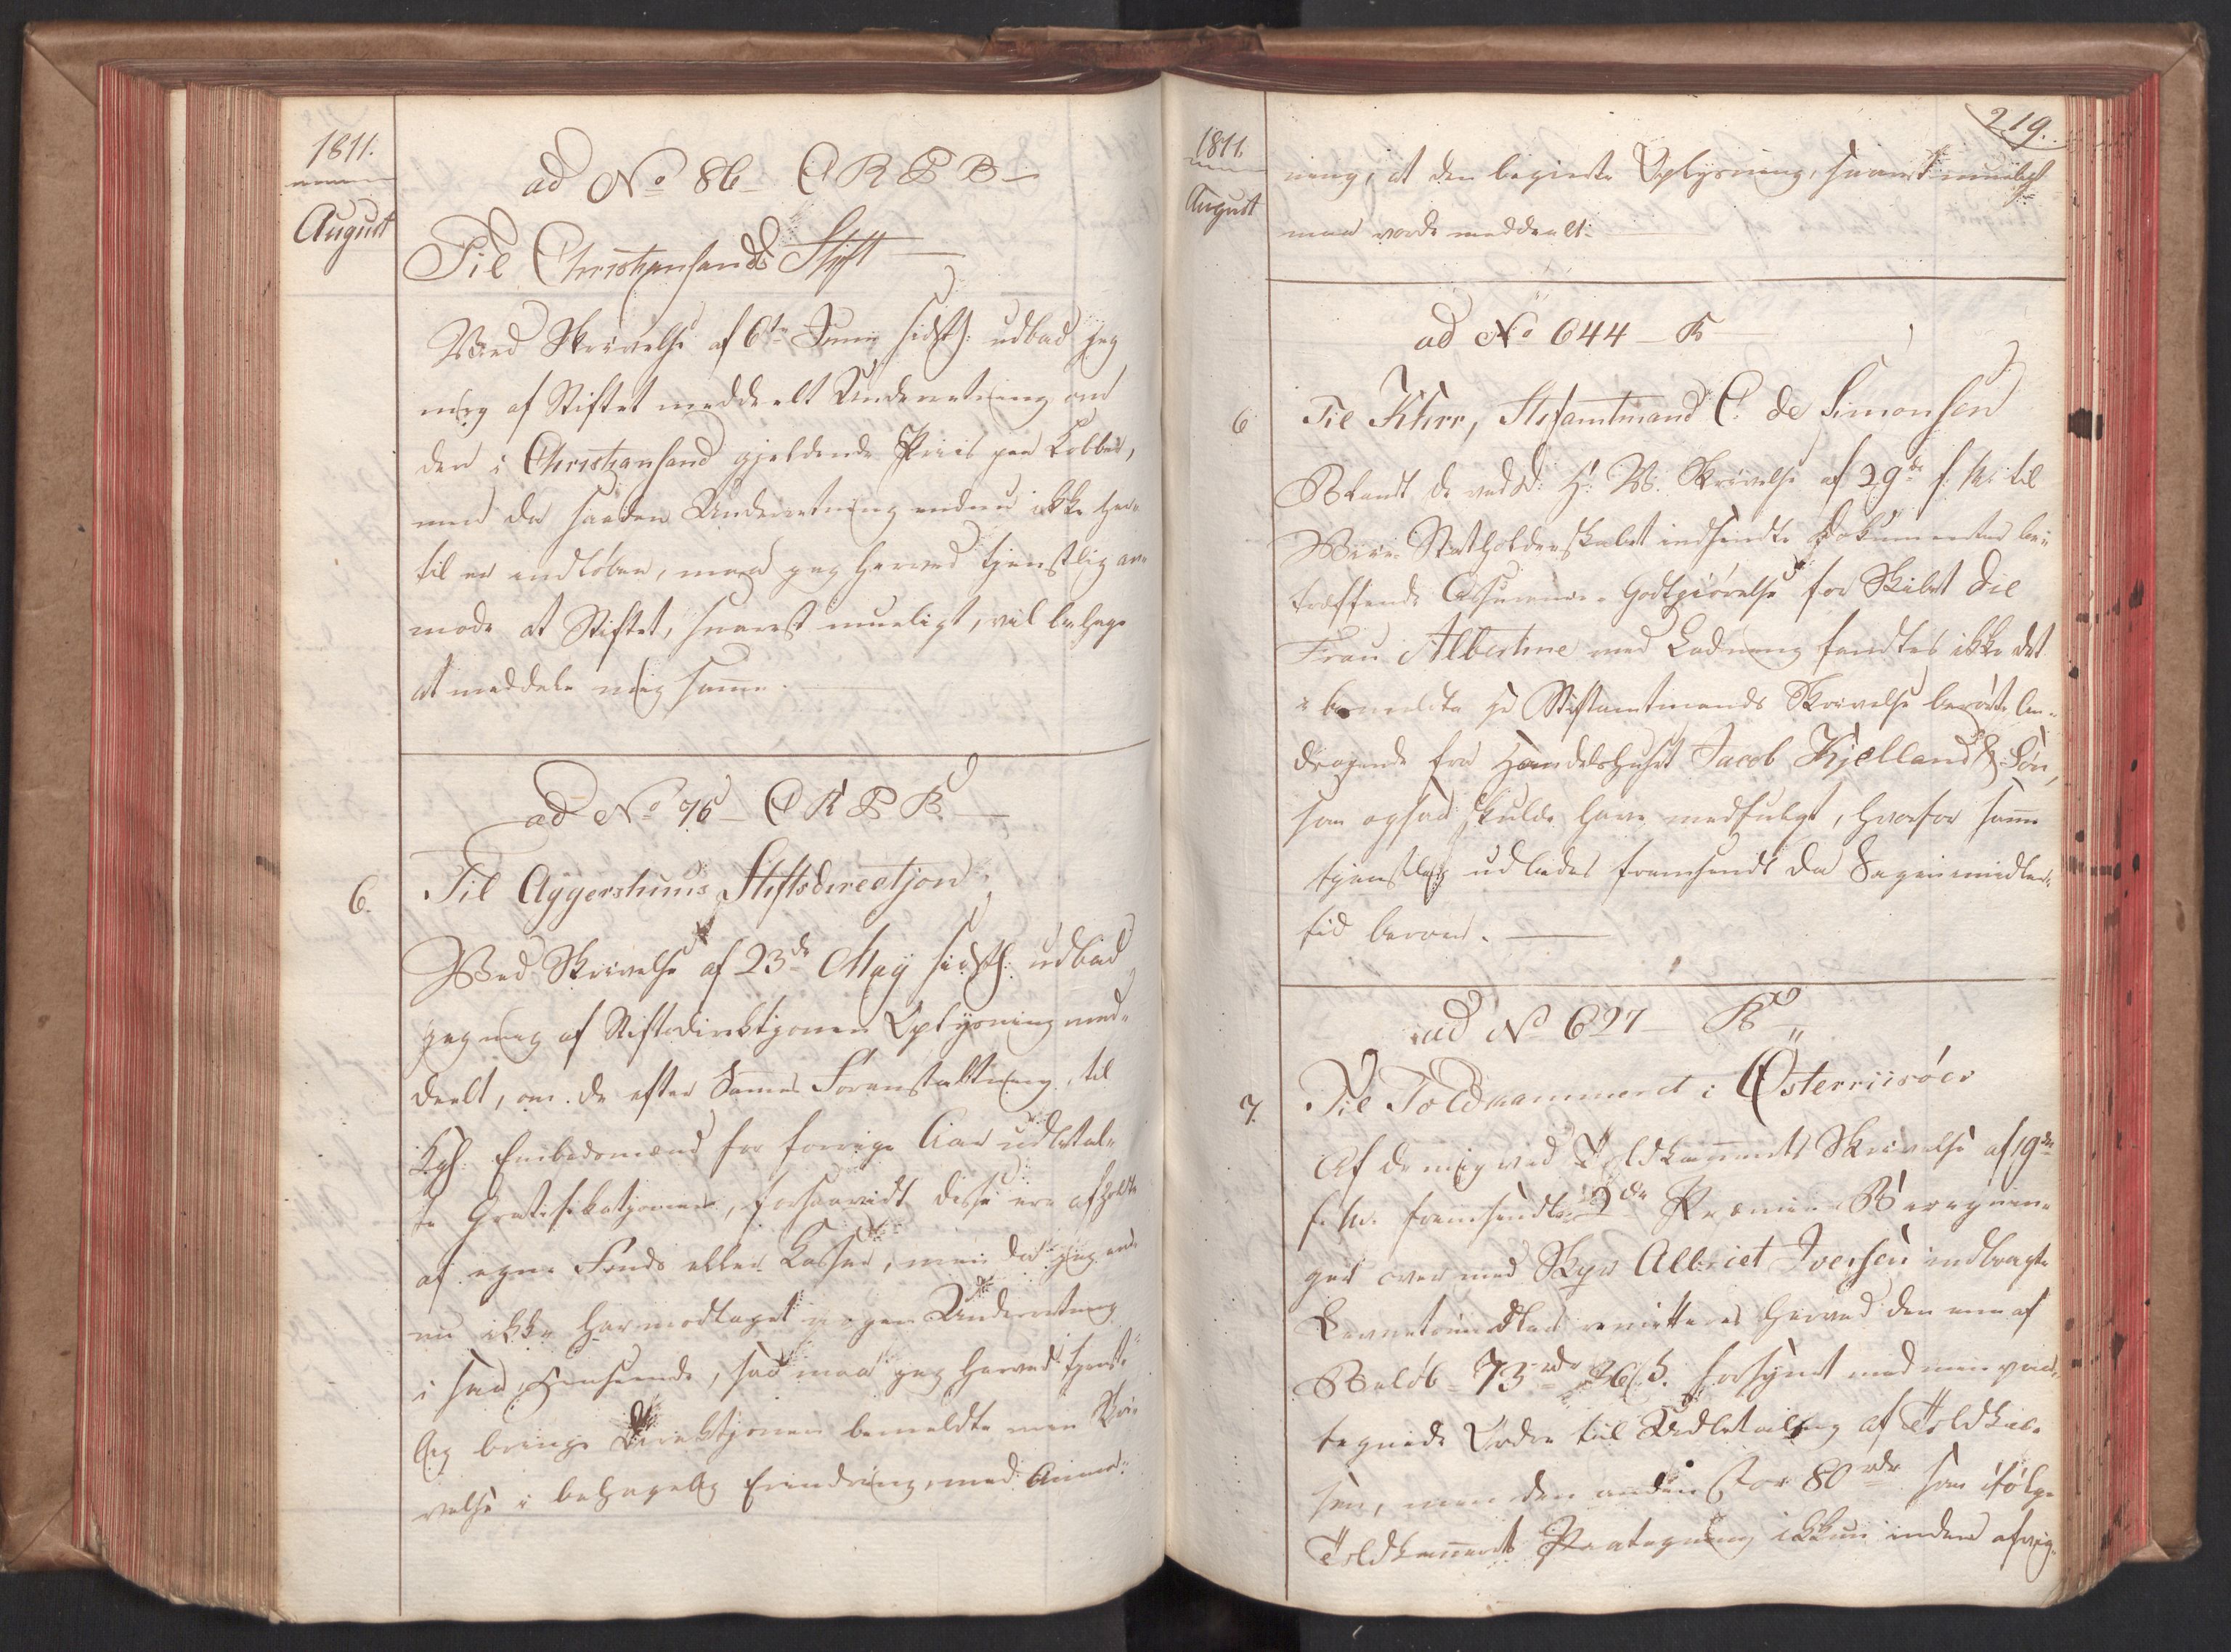 1811.
August
ad No 86 C R P B
Til Christiansands Stift
Ved Skrivelse af 6te Junii sidstl: udbad jeg
mig af Stiftet meddeelt Underretning om
den i Christiansand gjeldende Priis paa Kobber,
men da saadan Underretning endnu ikke her¬
til er indløben, maa jeg herved tjenstlig an¬
mode at Stiftet, snarest mueligt, vil behage
at meddele mig samme.
ad No 76 C R P B
6.
Til Aggershuus Stiftsdirectjon
Ved Skrivelse af 23de May sidstl: udbad
jeg mig af Stiftsdirektjonen Oplysning med¬
deelt, om de efter Sammes Foranstaltning, til
Kgl: Embedsmænd for forrige Aar udbetal¬
te Gratifikatjoner, forsaavidt disse ere afholdte
af egne Fonds eller Casser, men da jeg end¬
nu ikke har modtaget nogen Underretning
i saa Henseende, saa maa jeg herved tjenst¬
lig bringe Direktjonen bemeldte min Skri¬
velse i behagelig Erindring, med Anmod¬
219.
1811.
August
ning, at den begjerte Oplysning, snarest mueligt
maa vorde meddeelt.
ad No 644 B
6
Til Khrr, Stiftamtmand C. de Simonsen
Blandt de ved D: H: V: Skrivelse af 29de f. M. til
Vice-Statholderskabet indsendte Dokumenter be¬
træffende Assurance-Godtgiørelse for Skibet Die
Frau Albertine med Ladning fandtes ikke det
i bemeldte Hr Stiftamtmands Skrivelse berørte An¬
dragende fra Handelshuset Jacob Kjelland & Søn,
som ogsaa skulde have medfulgt, hvorfor samme
tjenstlig udbedes fremsendt da Sagen imidler¬
tid beroer.
ad No 697 B
7.
Til Toldkammeret i Østerriisøer
Af de mig ved Toldkammerets Skrivelse af 19de
f. M. fremsendte 2de Præmie-Beregnin¬
ger over med Skpr Albriet Iversen indbragte
Levnetsmidler remitteres herved den ene af
Beløb 73 rdr 36 s. forsynet med min paa¬
tegnede Ordre til Udbetaling af Toldkas¬
sen, men den anden stor 80 rdr som ifølge
Toldkammerets Paategning ikkun inden afvig¬